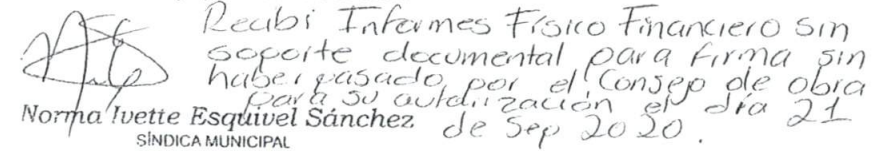 Recibi Informes Físico Financiero sin
soporte documental para firma sin
haber pasado por el Consejo de obra
para su autorización el día 21
de Sep 2020.
Norma Ivette Esquivel Sánchez
SÍNDICA MUNICIPAL